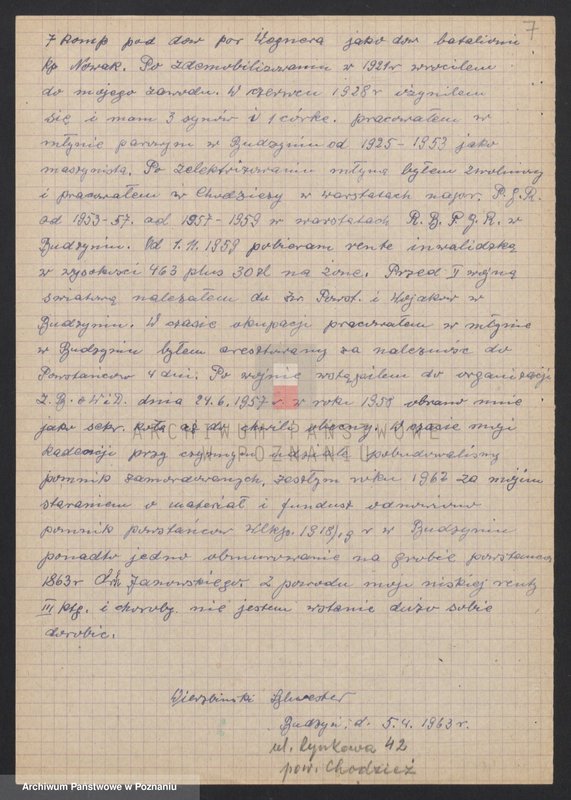 7
7 komp pod dow por Wognera jako dow bataljonu
Kp Nowak. Po zdemobilizowaniu w 1921 r wrociłem
do mojego zawodu. W czerwcu 1928 r ożyniłem
się i mam 3 synów i 1 córkę. pracowałem w
młynie parowym w Budzyniu od 1925 - 1953 jako
maszynista. Po zelektrizowaniu młyna byłem zwolniony
i pracowałem w Chodzieży w warstatach napr. P.G.R.
od 1953-57. od 1957 - 1959 w warstatach R.B.P.G.R. w
Budzyniu. Od 1.11.1959 pobieram rente inwalidzką
w wysokosci 463 plus 30 zł na żone. Przed II wojną
swiatową należałem do Zw. Powst. i Wojakow w
Budzyniu. W czasie okupacji pracowałem w młynie
w Budzyniu byłem aresztowany za należność do
Powstańcow 4 dni. Po wojnie wstąpiłem do organizacji
Z.B.oWiD. dnia 24.6.1957 r. w roku 1958 obrano mnie
jako sekr. koła aż do chwili obecnej. W czasie mojej
kadencji przy czynnym udziale pobudowalismy
pomnik zamordowanych, zeszłym roku 1962 za mojim
staraniem o materiał i fundusz odnowiono
pomnik powstańcow Wlkp. 1918/19 r w Budzyniu
ponadto jedno obmurowanie na grobie powstańca
1863 r Janowskiego. Z powodu moji niskiej renty
III ktg. i choroby nie jestem wstanie dużo sobie
dorobic.
Wierzbinski Sylwester
Budzyń, d. 5.4.1963 r.
ul. Rynkowa 42
pow. Chodzież
ARCHIWUM PAŃSTWOWE
W POZNANIU
Archiwum Państwowe w Poznaniu